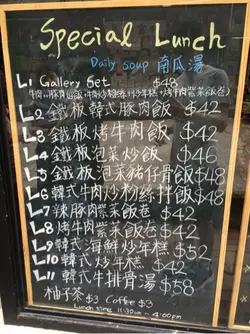 Special Lunch
Daily Soup 南瓜湯
L1 Gallery Set $48
L2 鐵板韓式豚肉飯 $42
L3 鐵板烤牛肉飯 $42
L4 鐵板泡菜炒飯 $46
L5 鐵板泡菜豬仔骨飯 $48
L6 韓式牛肉炒粉絲拌飯 $48
L7 辣豚肉紫菜飯卷 $42
L8 烤牛肉紫菜飯卷 $42
L9 韓式海鮮炒年糕 $52
L10 韓式炒年糕 $42
L11 韓式牛排骨湯 $58
柚子茶 $3 Coffee $3
Lunch time 11:30am - 4:00pm